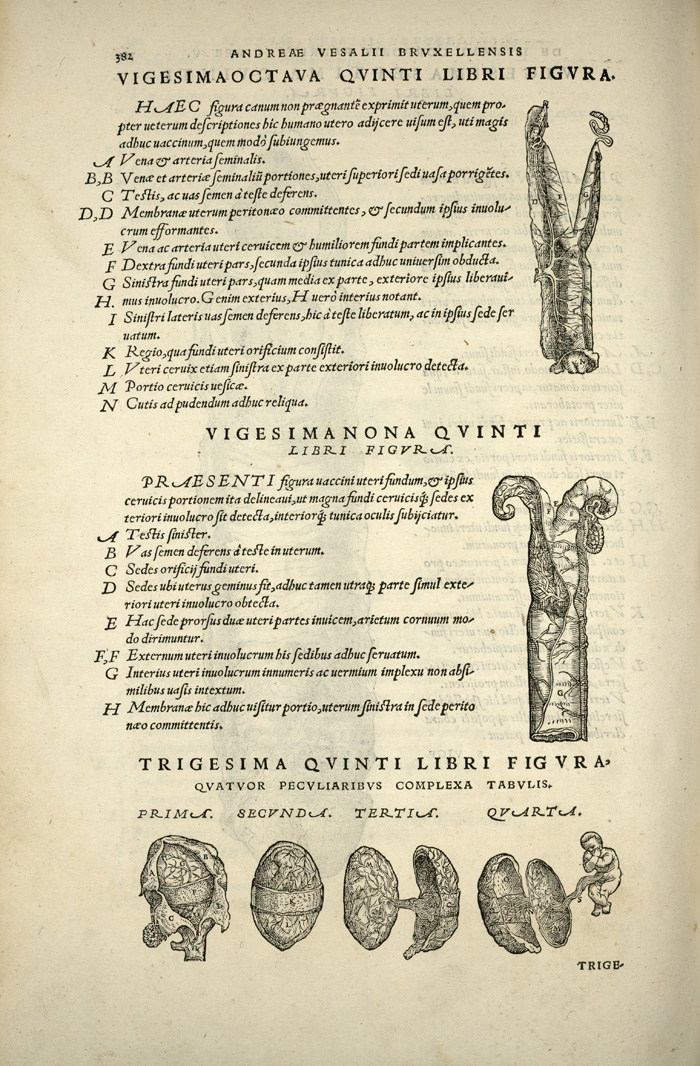 382 ANDREAE VESALII BRVXELLENSIS
VIGESIMAOCTAVA QVINTI LIBRI FIGVRA.
HAEC figura canum non prægnantẽ exprimit uterum, quem pro-
pter ueterum descriptiones hic humano utero adijcere uisum est, uti magis
adhuc uaccinum, quem modò subiungemus.
A Vena & arteria seminalis.
B,B Venæ et arteriæ seminaliũ portiones, uteri superiori sedi uasa porrigẽtes.
C Testis, ac uas semen à teste deferens.
D,D Membranæ uterum peritonæo committentes, & secundum ipsius inuolu-
crum efformantes.
E Vena ac arteria uteri ceruicem & humiliorem fundi partem implicantes.
F Dextra fundi uteri pars, secunda ipsius tunica adhuc uniuersim obducta.
G Sinistra fundi uteri pars, quam media ex parte, exteriore ipsius liberaui-
H. mus inuolucro. G enim exterius, H uerò interius notant.
I Sinistri lateris uas semen deferens, hic à teste liberatum, ac in ipsius sede ser
uatum.
K Regio, qua fundi uteri orificium consistit.
L Vteri ceruix etiam sinistra ex parte exteriori inuolucro detecta.
M Portio ceruicis uesicæ.
N Cutis ad pudendum adhuc reliqua.
VIGESIMANONA QVINTI
LIBRI FIGVRA.
PRAESENTI figura uaccini uteri fundum, & ipsius
ceruicis portionem ita delineaui, ut magna fundi ceruicisq́; sedes ex
teriori inuolucro sit detecta, interiorq́; tunica oculis subijciatur.
A Testis sinister.
B Vas semen deferens à teste in uterum.
C Sedes orificij fundi uteri.
D Sedes ubi uterus geminus fit, adhuc tamen utraq; parte simul exte-
riori uteri inuolucro obtecta.
E Hac sede prorsus duæ uteri partes inuicem, arietum cornuum mo-
do dirimuntur.
F,F Externum uteri inuolucrum his sedibus adhuc seruatum.
G Interius uteri inuolucrum innumeris ac uermium implexu non absi-
milibus uasis intextum.
H Membranæ hic adhuc uisitur portio, uterum sinistra in sede perito
næo committentis.
TRIGESIMA QVINTI LIBRI FIGVRA,
QVATVOR PECVLIARIBVS COMPLEXA TABVLIS.
PRIMA. SECVNDA. TERTIA. QVARTA.
TRIGE-